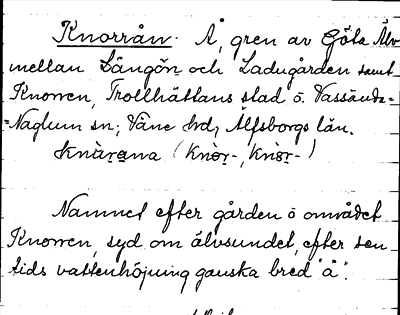 Knorrån. Å, gren av Göta Älv
mellan Långön och Ladugården samt
Knorren, Trollhättans stad o. Vassända-
-Naglum sn; Väne hd, Älfsborgs län.
Knàrana (Knòr-, Knòr-)
Namnet efter gården o området
Knorren, syd om älvsundet, efter sen
tids vattenhöjning ganska bred "å".